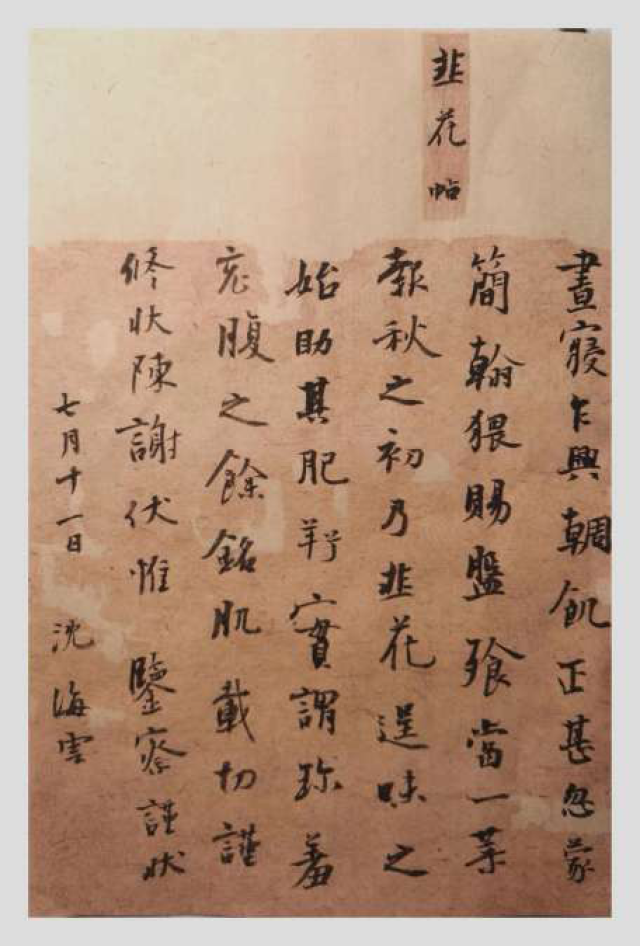 韭花帖
晝寢乍興輖飢正甚忽蒙
簡翰猥賜盤飧當一葉
報秋之初乃韭花逞味之
始助其肥羜實謂珍羞
充腹之餘銘肌載切謹
修狀陳謝伏惟 鑒察謹狀
七月十一日 沈海雲